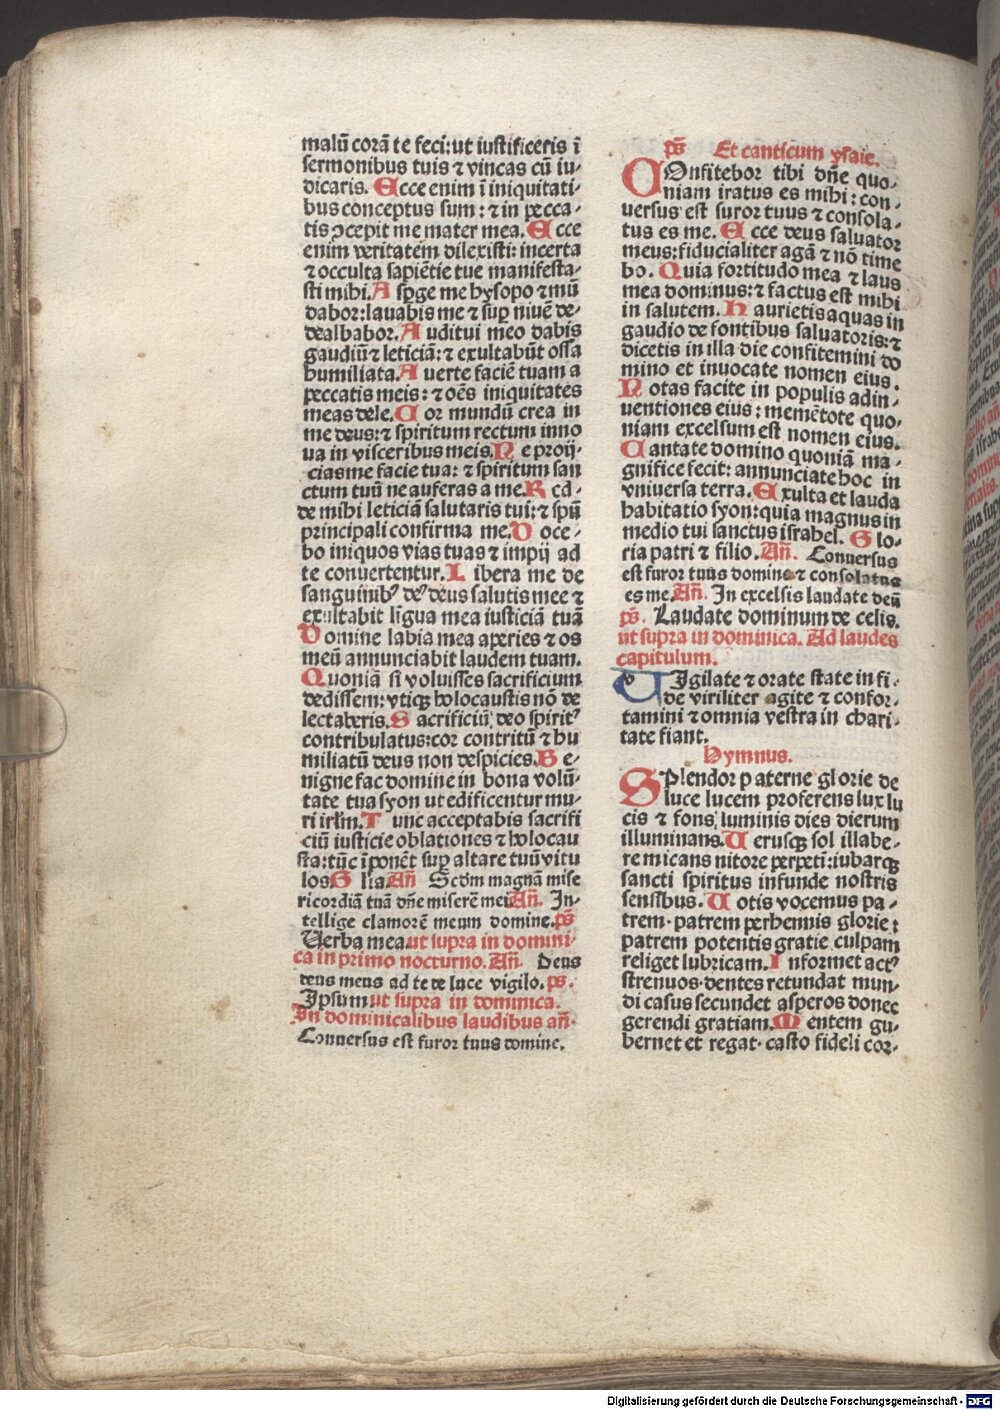 malū corā te feci: ut iustificeris ī
sermonibus tuis ⁊ vincas cū iu-
dicaris. Ecce enim ī iniquitati-
bus conceptus sum: ⁊ in pecca-
tis ꝯcepit me mater mea. Ecce
enim veritatem dilexisti: incerta
⁊ occulta sapiētie tue manifesta-
sti mihi. Aspge me hysopo ⁊ mū
dabor: lauabis me ⁊ sup niuē de-
dealbabor. Auditui meo dabis
gaudiū ⁊ leticiā: ⁊ exultabūt ossa
humiliata. Auerte faciē tuam a
peccatis meis: ⁊ oēs iniquitates
meas dele. Cor mundū crea in
me deus: ⁊ spiritum rectum inno
ua in visceribus meis. Ne proij-
cias me facie tua: ⁊ spiritum san
ctum tuū ne auferas a me. Red-
de mihi leticiā salutaris tui: ⁊ spū
principali confirma me. Doce-
bo iniquos vias tuas ⁊ impij ad
te conuertentur. Libera me de
sanguinibꝰ deꝰ deus salutis mee ⁊
exultabit līgua mea iusticiā tuā
Domine labia mea aperies ⁊ os
meū annunciabit laudem tuam.
Quoniā si voluisses sacrificium
dedissem: vtiqꝫ holocaustis nō de
lectaberis. Sacrificiū deo spiritꝰ
contribulatus: cor contritū ⁊ hu
miliatū deus non despicies. Be-
nigne fac domine in bona volū-
tate tua syon ut edificentur mu-
ri irlm̄. Tunc acceptabis sacrifi
ciū iusticie oblationes ⁊ holocau
sta: tūc īponēt sup altare tuū vitu
los Glia Añ Scd̄m magnā mise
ricordiā tuā dn̄e miserēmei Añ. In-
tellige clamorē meum domine. ps̄
Uerba mea. ut supra in domini-
ca in primo nocturno. Añ. Deus
deus meus ad te de luce vigilo. ps.
Ipsum ut supra in dominica.
In dominicalibus laudibus añ.
Conuersus est furor tuus domine.
ps̄ Et canticum ysaie.
COnfitebor tibi dn̄e quo-
niam iratus es mihi: con-
uersus est furor tuus ⁊ consola-
tus es me. Ecce deus saluator
meus: fiducialiter agā ⁊ nō time
bo. Quia fortitudo mea ⁊ laus
mea dominus: ⁊ factus est mihi
in salutem. Haurietis aquas in
gaudio de fontibus saluatoris: ⁊
dicetis in illa die confitemini do
mino et inuocate nomen eius.
Notas facite in populis adin-
uentiones eius: memētote quo-
niam excelsum est nomen eius.
Cantate domino quoniā ma-
gnifice fecit: annunciate hoc in
vniuersa terra. Exulta et lauda
habitatio syon: quia magnus in
medio tui sanctus israhel. Glo-
ria patri ⁊ filio. Añ. Conuersus
est furor tuus domine ⁊ consolatus
es me. Añ. In excelsis laudate deū
ps̄. Laudate dominum de celis.
ut supra in dominica. Ad laudes
capitulum.
UIgilate ⁊ orate state in fi-
de viriliter agite ⁊ confor-
tamini ⁊ omnia vestra in chari-
tate fiant.
Hymnus.
SPlendor paterne glorie de
luce lucem proferens lux lu
cis ⁊ fons luminis dies dierum
illuminans. Uerusqꝫ sol illabe-
re micans nitore perpeti: iubarqꝫ
sancti spiritus infunde nostris
sensibus. Uotis vocemus pa-
trem. patrem perhennis glorie:
patrem potentis gratie culpam
religet lubricam. Informet actꝰ
strenuos. dentes retundat inui-
di casus secundet asperos donec
gerendi gratiam. Mentem gu-
bernet et regat. casto fideli cor-
Digitalisierung gefördert durch die Deutsche Forschungsgemeinschaft - DFG